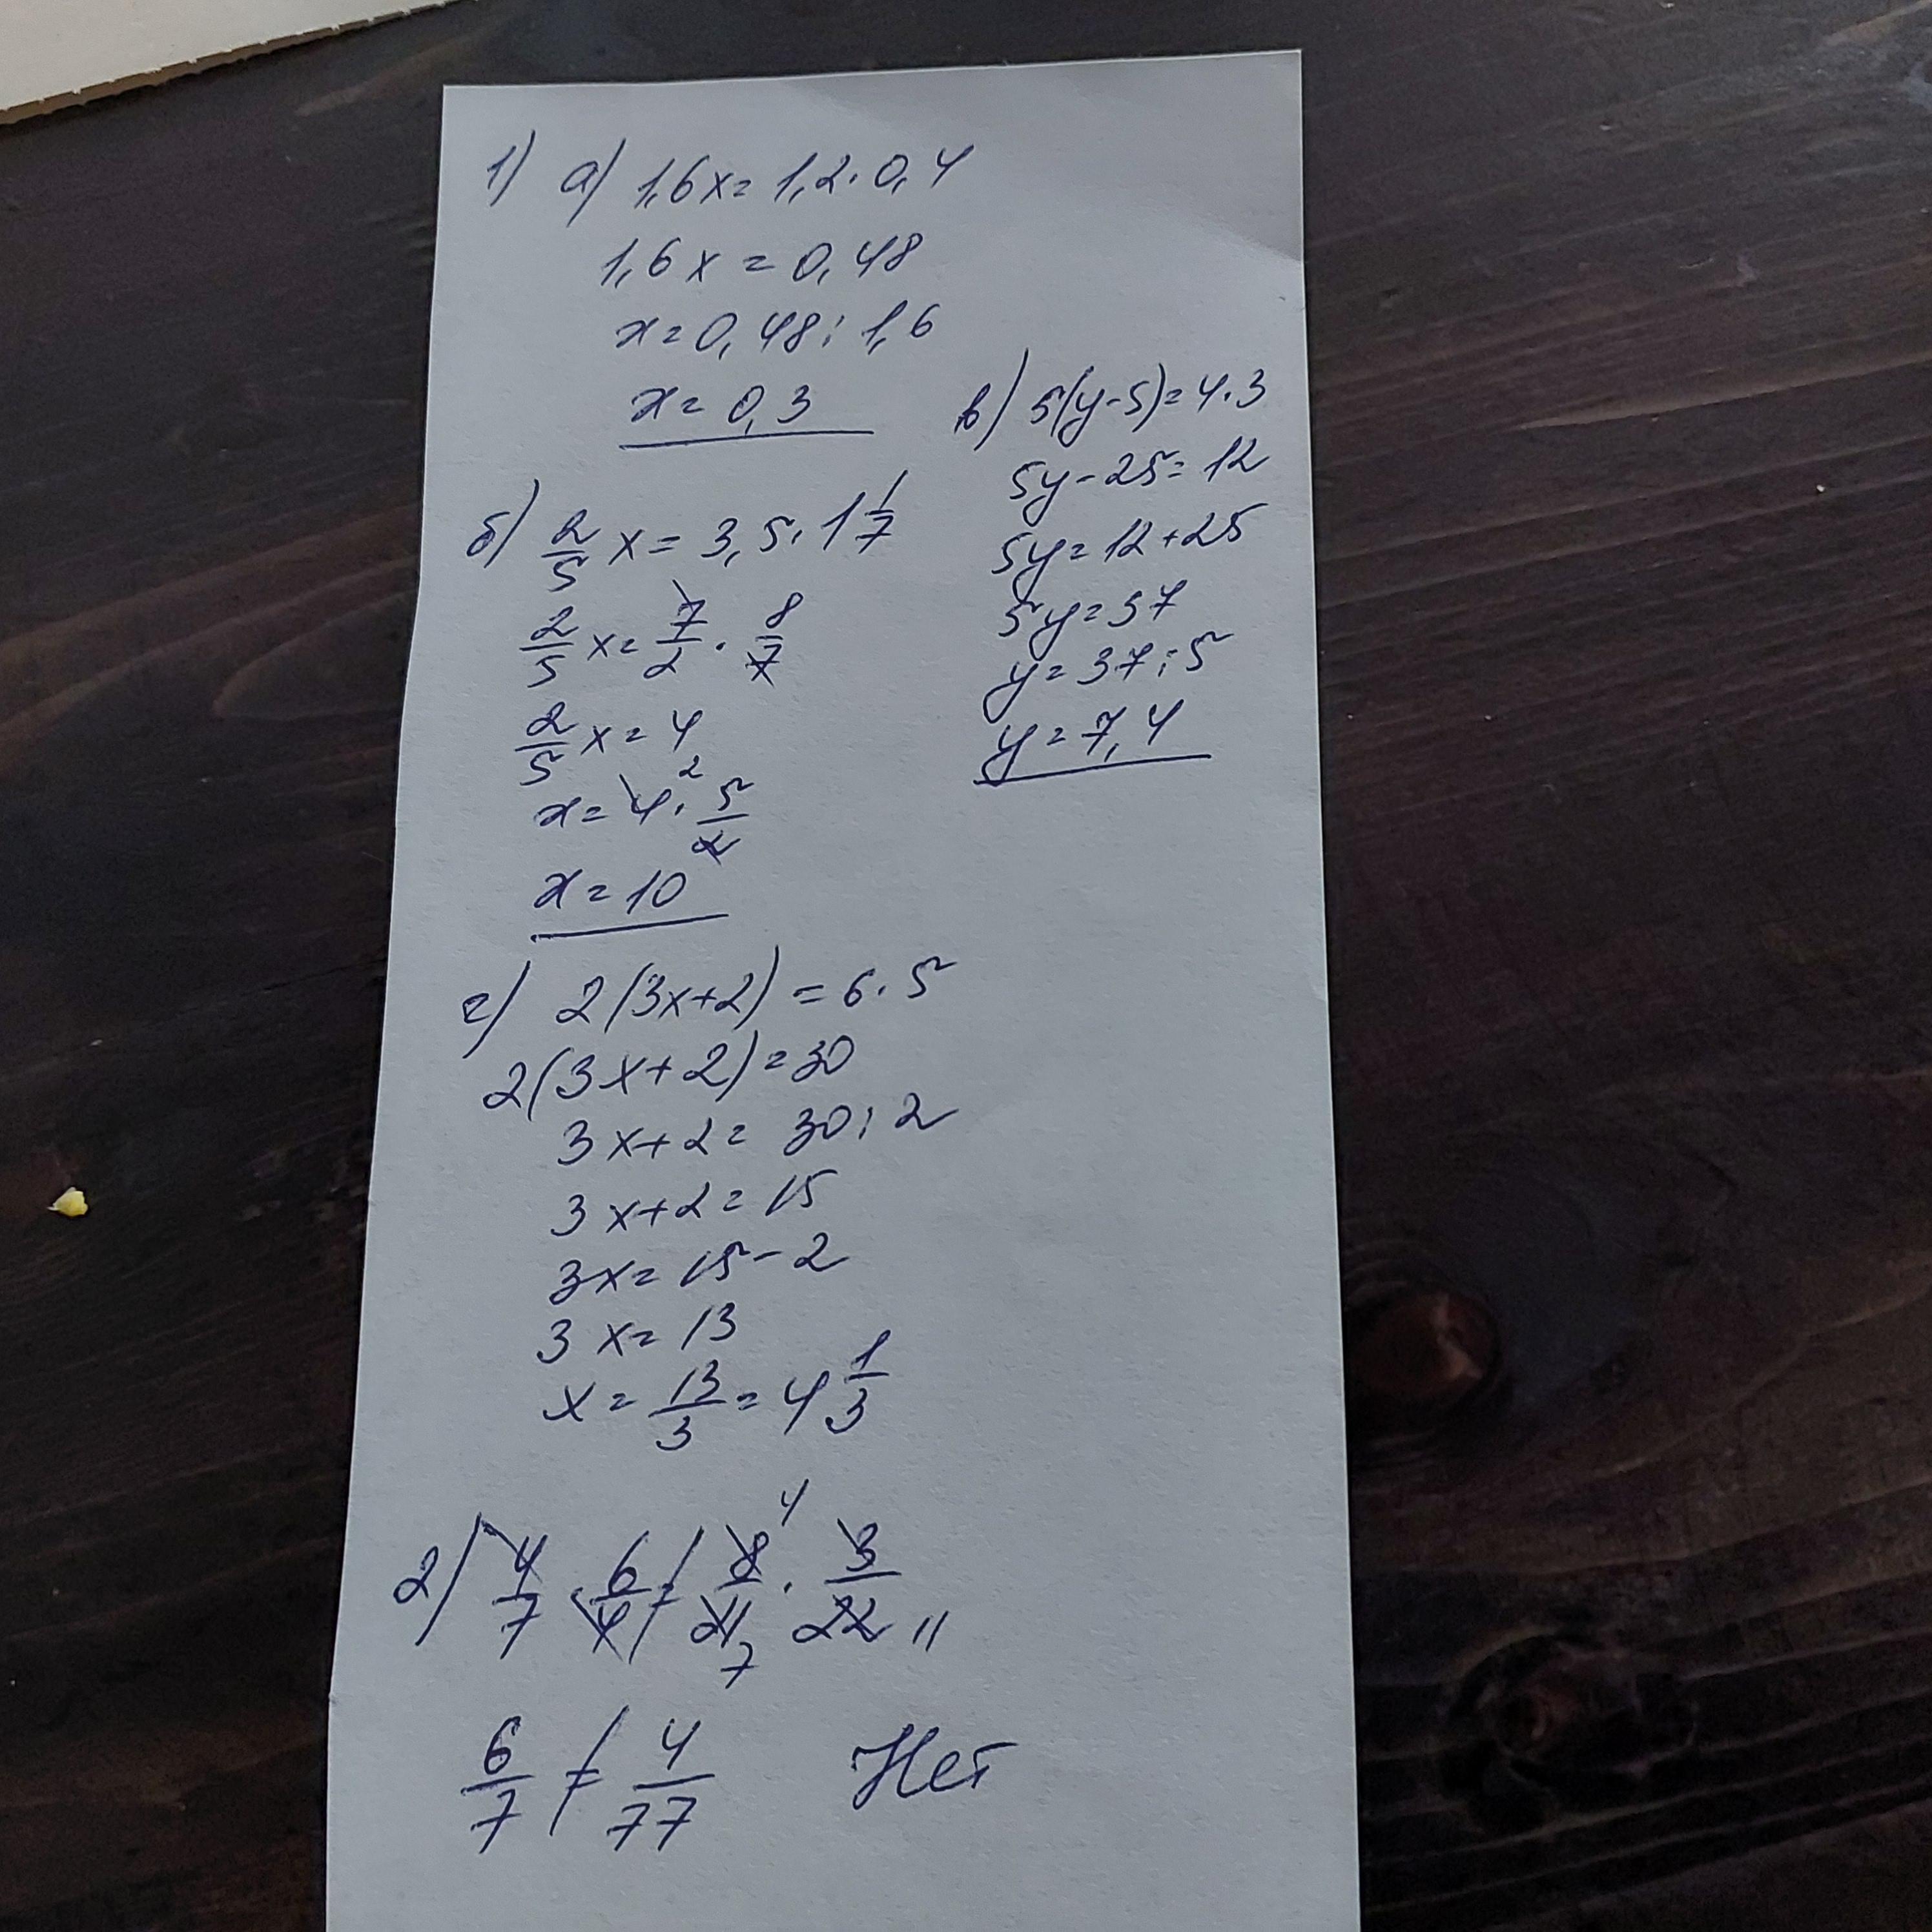 1) а) 1,6x = 1,2 · 0,4
1,6x = 0,48
x = 0,48 : 1,6
x = 0,3
б) 2/5 x = 3,5 · 1 1/7
2/5 x = 7/2 · 8/7
2/5 x = 4
x = 4 2 · 5/2
x = 10
в) 5(y-5) = 4·3
5y - 25 = 12
5y = 12 + 25
5y = 37
y = 37 : 5
y = 7,4
г) 2(3x+2) = 6 · 5
2(3x+2) = 30
3x+2 = 30 : 2
3x+2 = 15
3x = 15 - 2
3x = 13
x = 13/3 = 4 1/3
2) 4/7 · 6/4 ≠ 8 4/21 7 · 3/22 11
6/7 ≠ 4/77 Нет